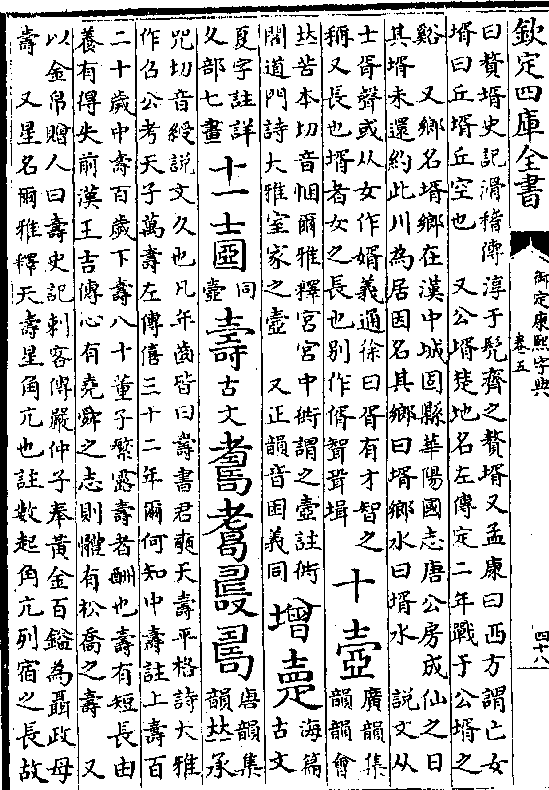 欽定四庫全書
御定康熙字典
卷五
四十八
曰贅壻史記滑稽傳淳于髡齊之贅壻又孟康曰西方謂亡女
壻曰丘壻丘空也 又公壻楚地名左傳定二年戰于公壻之
谿 又鄉名壻鄉在漢中城固縣華陽國志唐公房成仙之日
其壻未還約此川為居因名其鄉曰壻鄉水曰壻水 說文从
士胥聲或从女作婿義通徐曰胥有才智之
稱又長也壻者女之長也別作偦聟聓揟
十 壼 廣韻集
韻韻會
𠀤苦本切音悃爾雅釋宮宮中衖謂之壼註衖
閤道門詩大雅室家之壼 又正韻音困義同
增 海篇
古文
夏字註詳
夂部七畫
十一 士 同
壼
壽 古文
唐韻集
韻𠀤承
咒切音綬說文久也凡年齒皆曰壽書君奭天壽平格詩大雅
作召公考天子萬壽左傳僖三十二年爾何知中壽註上壽百
二十歲中壽百歲下壽八十董子繁露壽者酬也壽有短長由
養有得失前漢王吉傳心有堯舜之志則體有松喬之壽 又
以金帛贈人曰壽史記刺客傳嚴仲子奉黃金百鎰為聶政母
壽 又星名爾雅釋天壽星角亢也註數起角亢列宿之長故